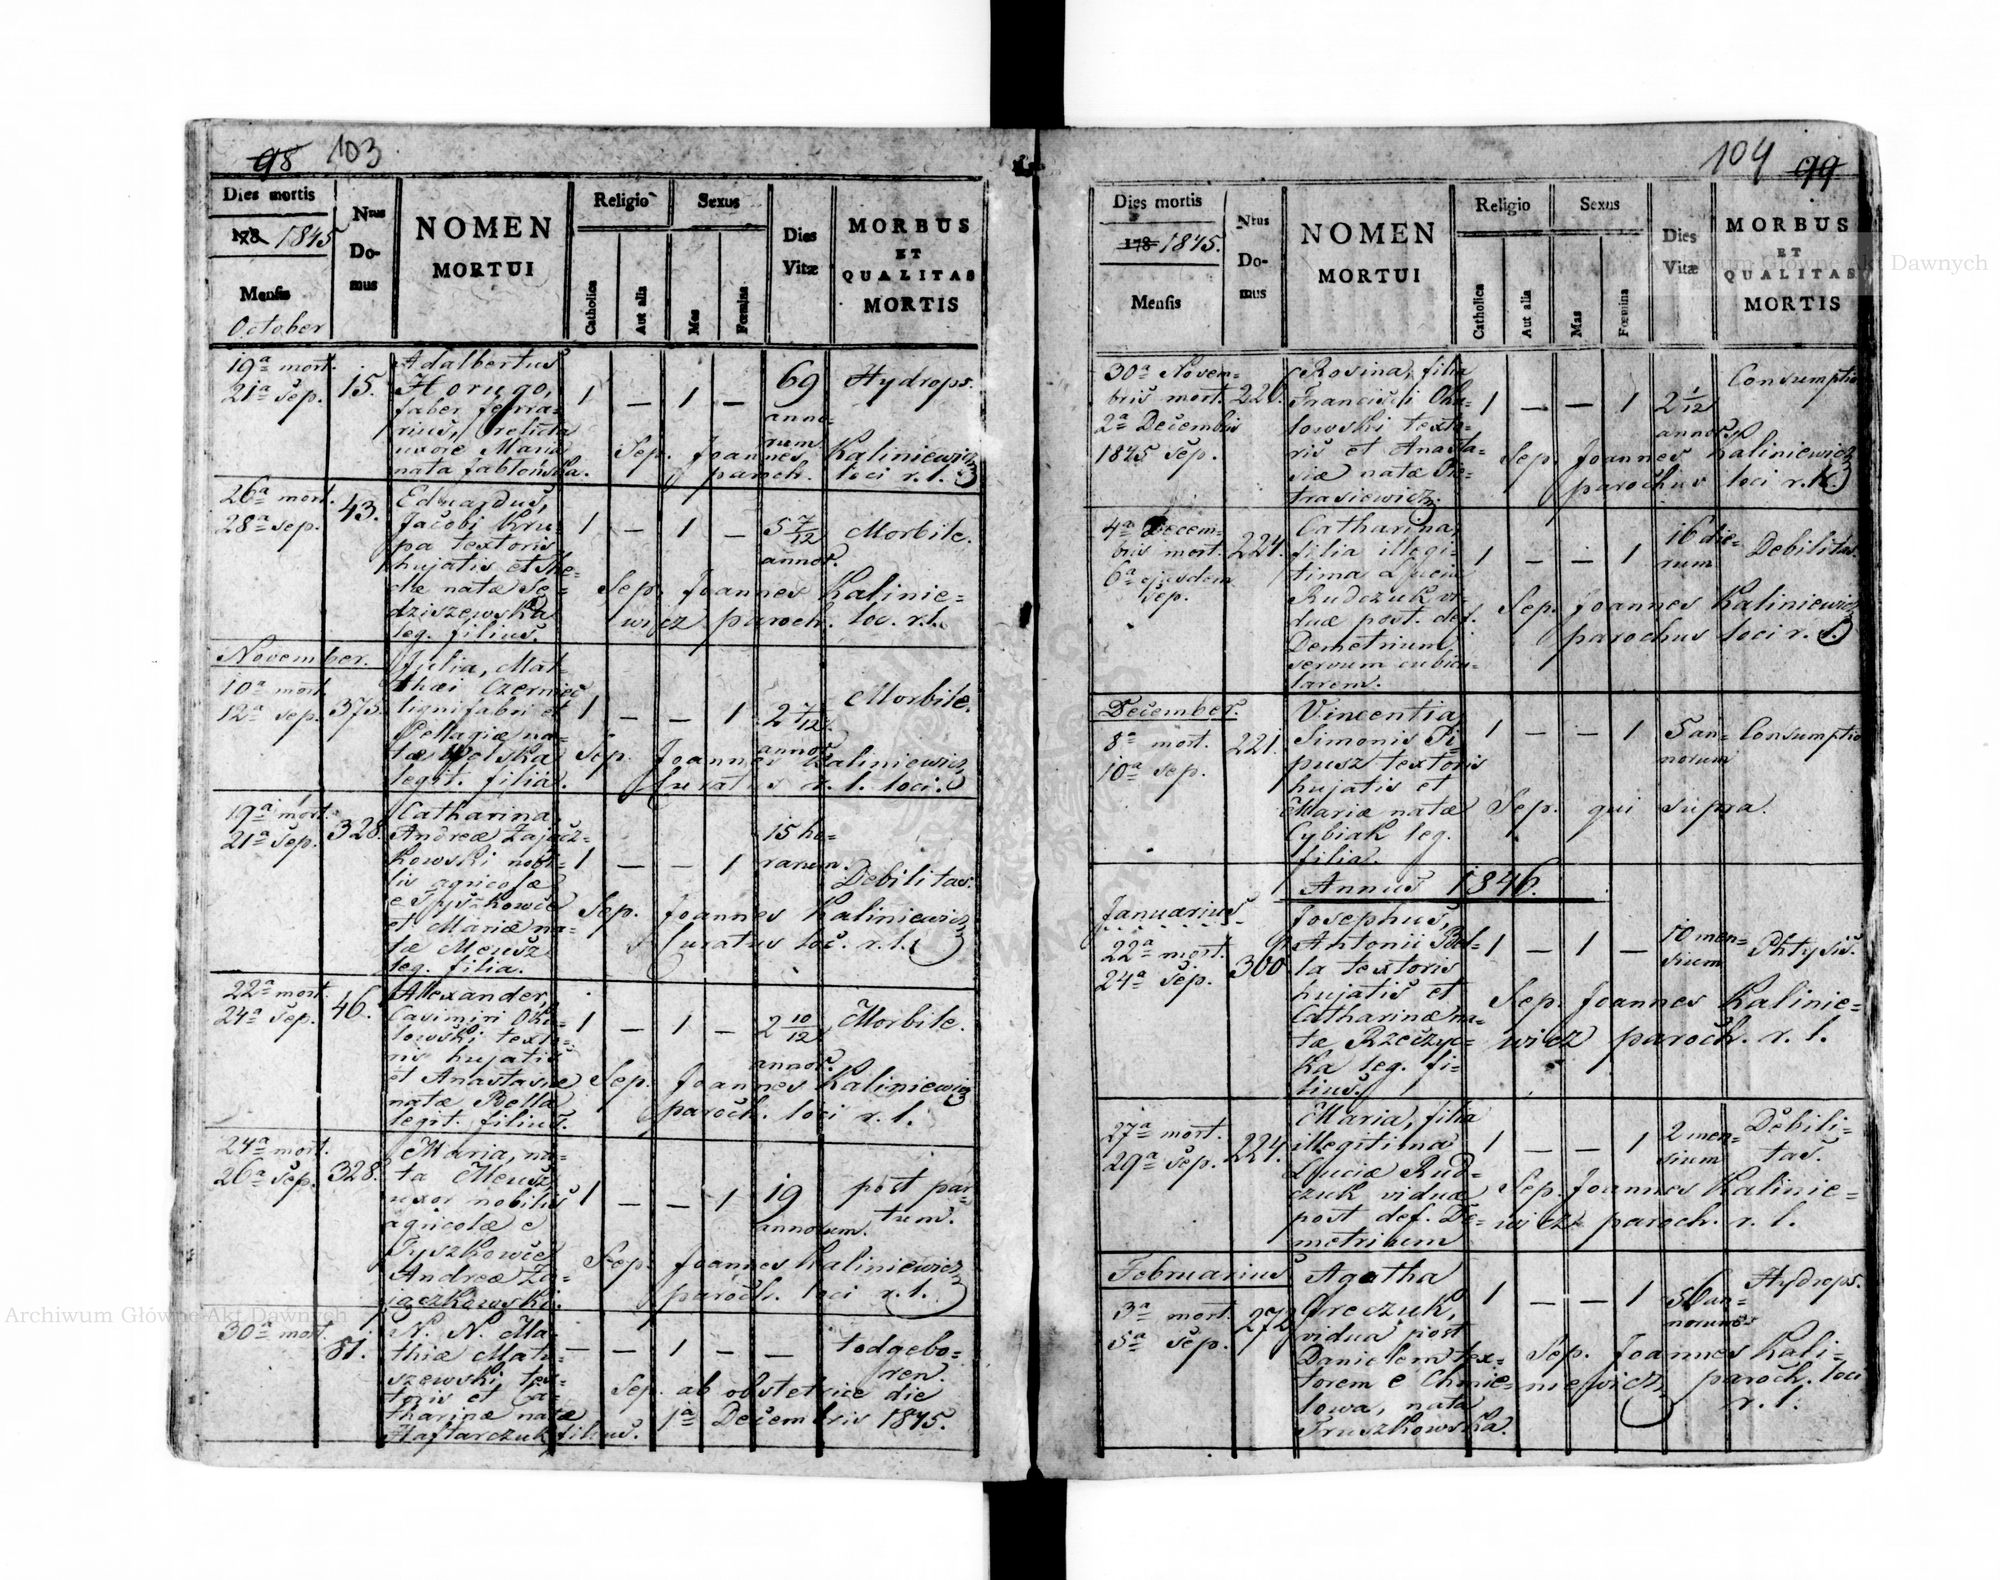 98 103
Dies mortis
178 1845
Mensis
October
Nrus
Do-
mus
NOMEN
MORTUI
Religio
Catholica
Aut alia
Sexus
Mas
Fœmina
Dies
Vitæ
MORBUS
ET
QUALITAS
MORTIS
19a mort.
21a sep.
15.
Adalbertus
Horugo,
faber ferra-
rius, relicta
uxore Maria
nata Jabłońska.
1 — 1 —
69
anno-
rum
Hydrops.
Sep. Joannes Kaliniewicz
paroch. loci r. l.
26a mort.
28a sep.
43.
Eduardus,
Jacobi Kru-
pa textoris
hujatis et The-
clæ natæ Sę-
dziszewska
leg. filius.
1 — 1 —
5 7/12
annor.
Morbile.
Sep. Joannes Kalinie-
wicz paroch. loc. r. l.
November.
10a mort.
12a sep.
375.
Julia, Mat-
thæi Czerniec
lignifabri et
Pellagiæ na-
tæ Wolska
legit. filia.
1 — — 1
2 7/12
annor.
Morbile.
Sep. Joannes Kaliniewicz
Curatus r. l. loci.
19a mort.
21a sep.
328.
Catharina,
Andreæ Zającz-
kowski nobi-
lis agricolæ
e Tyszkowce
et Mariæ na-
tæ Meusz
leg. filia.
1 — — 1
15 ho-
rarum.
Debilitas.
Sep. Joannes Kaliniewicz
Curatus loc. r. l.
22a mort.
24a sep.
46.
Alexander,
Casimiri Oka-
lowski texto-
ris hujatis
et Anastasiæ
natæ Bella
legit. filius.
1 — 1 —
2 10/12
annor.
Morbile.
Sep. Joannes Kaliniewicz
paroch. loci r. l.
24a mort.
26a sep.
328.
Maria, na-
ta Meusz,
uxor nobilis
agricolæ e
Tyszkowce
Andreæ Za-
jączkowski.
1 — — 1
19
annorum.
post par-
tum.
Sep. Joannes Kaliniewicz
paroch. loci r. l.
30a mort.
81.
N. N. Ma-
thiæ Matu-
szewski tex-
toris et Ca-
tharinæ natæ
Haftarczuk filius.
— — 1 — —
todgebo-
ren.
Sep. ab obstetrice die
1a Decembris 1845.
104 99
Dies mortis
178 1845.
Mensis
Nrus
Do-
mus
NOMEN
MORTUI
Religio
Catholica
Aut alia
Sexus
Mas
Fœmina
Dies
Vitæ
MORBUS
ET
QUALITAS
MORTIS
30a Novem-
bris mort.
2a Decembris
1845 sep.
220.
Rosina, filia
Francisci Oka-
lowski texto-
ris et Anasta-
siæ natæ Pie-
trasiewicz.
1 — — 1
2 1/12
annor.
Consumptio
Sep. Joannes Kaliniewicz
parochus loci r. l.
4a Decem-
bris mort.
6a ejusdem
sep.
224.
Catharina,
filia illegi-
tima Luciæ
Rudczuk vi-
duæ post. def.
Demetrium,
servum cubicu-
larem.
1 — — 1
16 die-
rum
Debilitas.
Sep. Joannes Kaliniewicz
parochus loci r. l.
December.
8a mort.
10a sep.
221.
Vincentia,
Simonis Pi-
pusz textoris
hujatis et
Mariæ natæ
Cybiak leg.
filia.
1 — — 1
5 an-
norum
Consumptio
Sep. qui supra.
Annus 1846.
Januarius.
22a mort.
24a sep.
300
Josephus,
Antonii Bel-
la textoris
hujatis et
Catharinæ na-
tæ Rzeczyc-
ka leg. fi-
lius.
1 — 1 —
10 men-
sium
Phtysis.
Sep. Joannes Kalinie-
wicz paroch. r. l.
27a mort.
29a sep.
224.
Maria, filia
illegitima
Luciæ Rud-
czuk viduæ
post def. De-
metrium
1 — — 1
2 men-
sium
Debili-
tas.
Sep. Joannes Kalinie-
wicz paroch. r. l.
Februarius
3a mort.
5a sep.
272
Agatha
Greczuk,
vidua post
Danielem tex-
torem e Chmie-
lowa, nata
Truszkowska.
1 — — 1
56 an-
norum
Hydrops.
Sep. Joannes Kali-
niewicz paroch. loci
r. l.
Archiwum Główne Akt Dawnych
Archiwum Główne Akt Dawnych